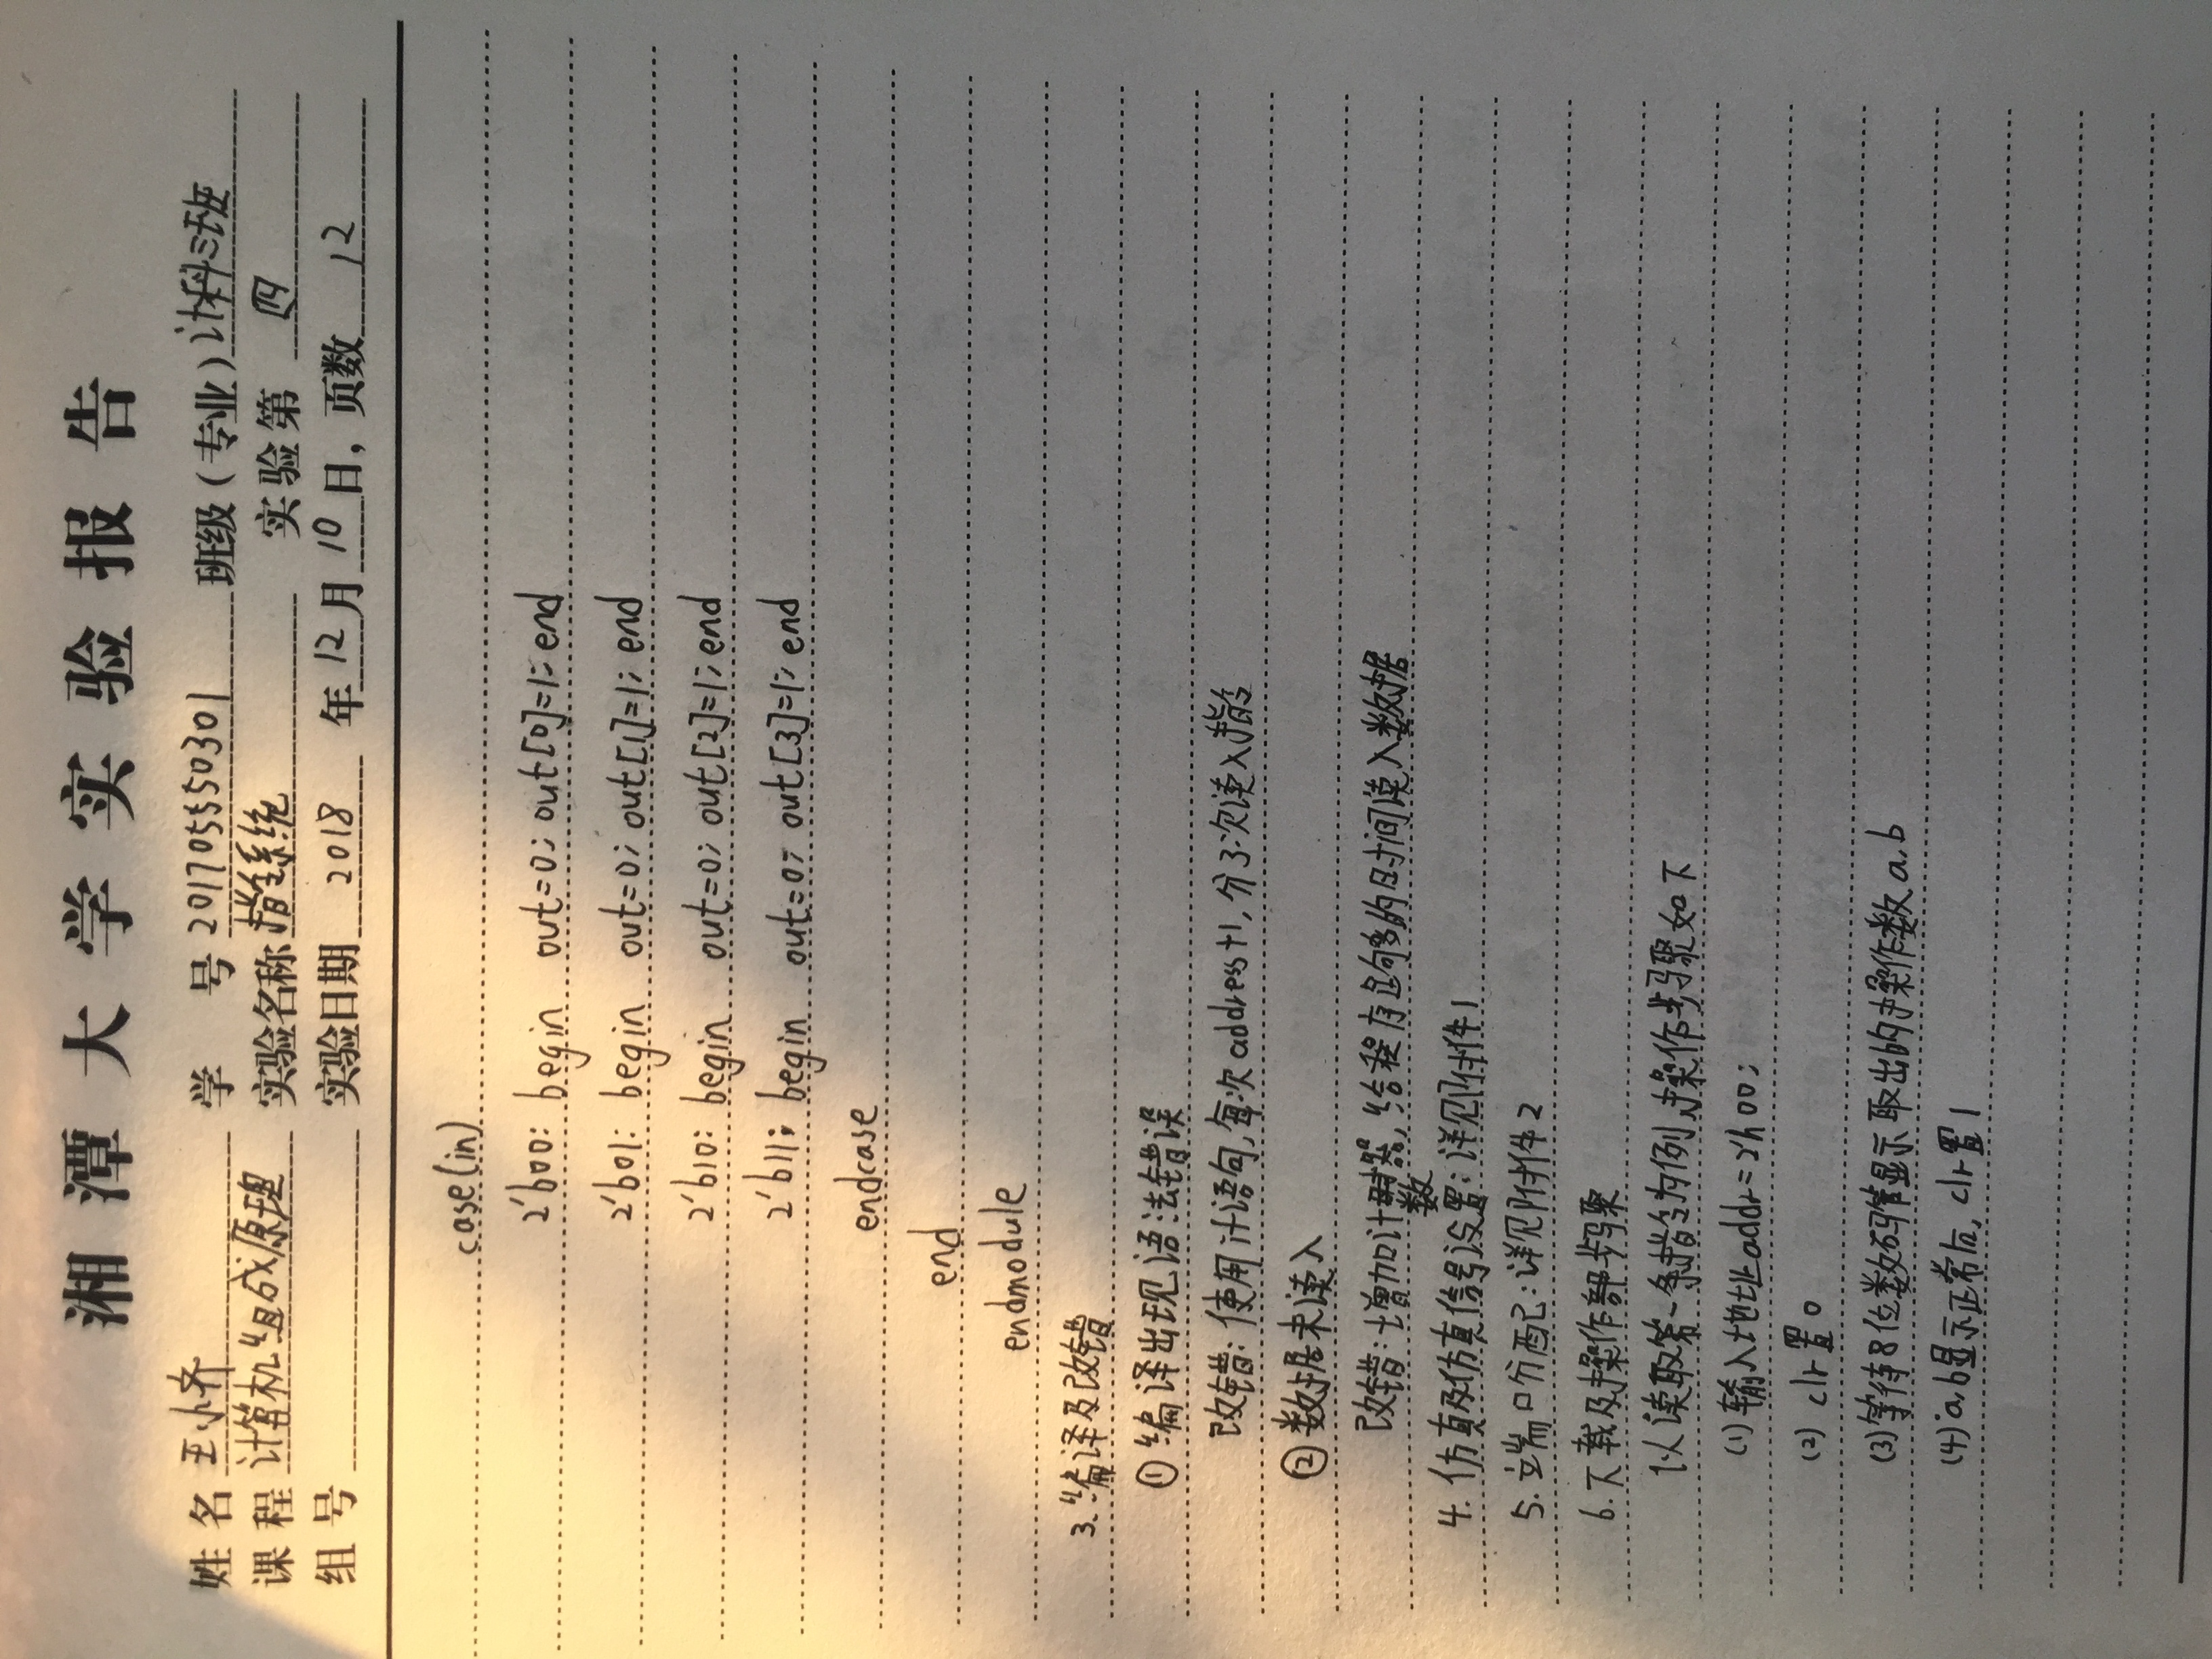 湘潭大学实验报告
姓名 王小齐 学号 201705550301 班级（专业）计科三班
课程 计算机组成原理 实验名称 指令系统 实验第 四
组号 实验日期 2018 年 12 月 10 日，页数 12
case(in)
2'b00: begin out=0; out[0]=1; end
2'b01: begin out=0; out[1]=1; end
2'b10: begin out=0; out[2]=1; end
2'b11: begin out=0; out[3]=1; end
endcase
end
endmodule
3.编译及改错
①编译出现语法错误
改错：使用计语句，每次address+1，分3次读入指令
②数据未读入
改错：增加计数器，给程序足够多的时间读入数据
4.仿真及仿真信号设置：详见附件1
5.端口分配：详见附件2
6.下载及操作部步骤
以读取第一条指令为例，操作步骤如下
(1)输入地址addr=2'h00;
(2) clr置0
(3)等待8位数码管显示取出的操作数a.b
(4)a.b显示正常后，clr置1